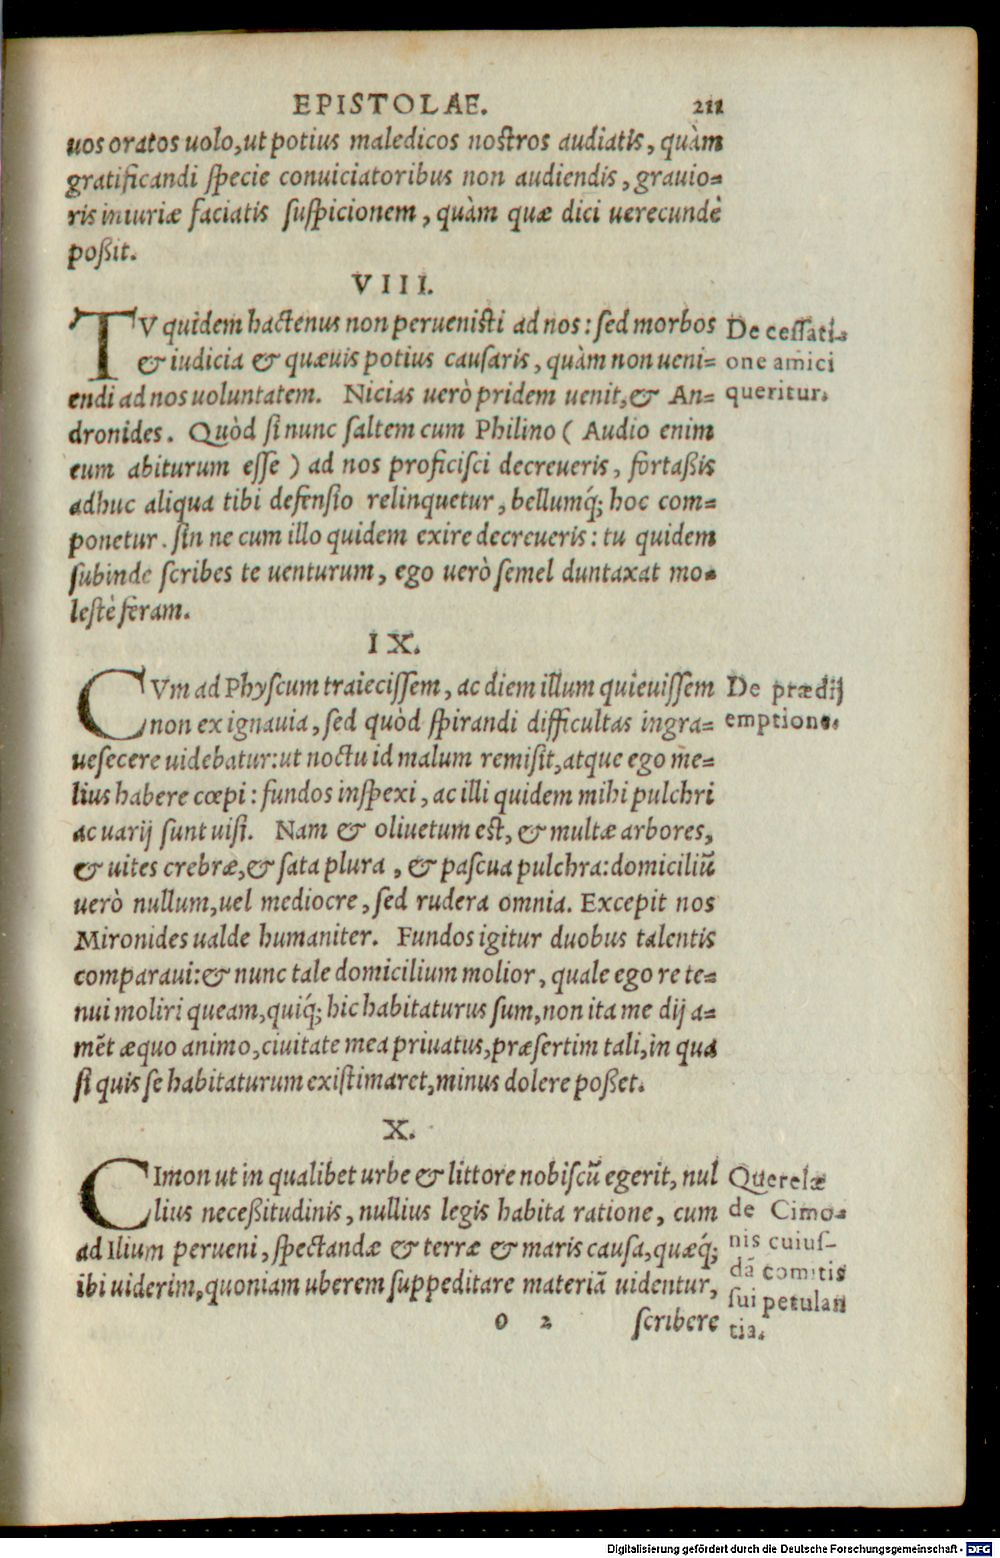 EPISTOLAE. 211
uos oratos uolo, ut potius maledicos nostros audiatis, quàm
gratificandi specie conuiciatoribus non audiendis, grauio=
ris iniuriæ faciatis suspicionem, quàm quæ dici uerecundè
poßit.
VIII.
TV quidem hactenus non peruenisti ad nos: sed morbos
& iudicia & quæuis potius causaris, quàm non ueni=
endi ad nos uoluntatem. Nicias uerò pridem uenit, & An=
dronides. Quòd si nunc saltem cum Philino ( Audio enim
eum abiturum esse ) ad nos proficisci decreueris, fortaßis
adhuc aliqua tibi defensio relinquetur, bellumq́; hoc com=
ponetur. sin ne cum illo quidem exire decreueris: tu quidem
subinde scribes te uenturum, ego uerò semel duntaxat mo=
lestè feram.
De cessati=
one amici
queritur.
IX.
CVm ad Physcum traiecissem, ac diem illum quieuissem
non ex ignauia, sed quòd spirandi difficultas ingra=
uesecere uidebatur: ut noctu id malum remisit, atque ego me=
lius habere cœpi: fundos inspexi, ac illi quidem mihi pulchri
ac uarij sunt uisi. Nam & oliuetum est, & multæ arbores,
& uites crebræ, & sata plura, & pascua pulchra: domiciliũ
uerò nullum, uel mediocre, sed rudera omnia. Excepit nos
Mironides ualde humaniter. Fundos igitur duobus talentis
comparaui: & nunc tale domicilium molior, quale ego re te=
nui moliri queam, quiq́; hic habitaturus sum, non ita me dij a=
mẽt æquo animo, ciuitate mea priuatus, præsertim tali, in qua
si quis se habitaturum existimaret, minus dolere poßet.
De prædij
emptione.
X.
CImon ut in qualibet urbe & littore nobiscũ egerit, nul
lius neceßitudinis, nullius legis habita ratione, cum
ad Ilium perueni, spectandæ & terræ & maris causa, quæq́;
ibi uiderim, quoniam uberem suppeditare materiã uidentur,
o 2 scribere
Querelæ
de Cimo=
nis cuius-
dã comitis
sui petulan
tia.
Digitalisierung gefördert durch die Deutsche Forschungsgemeinschaft - DFG